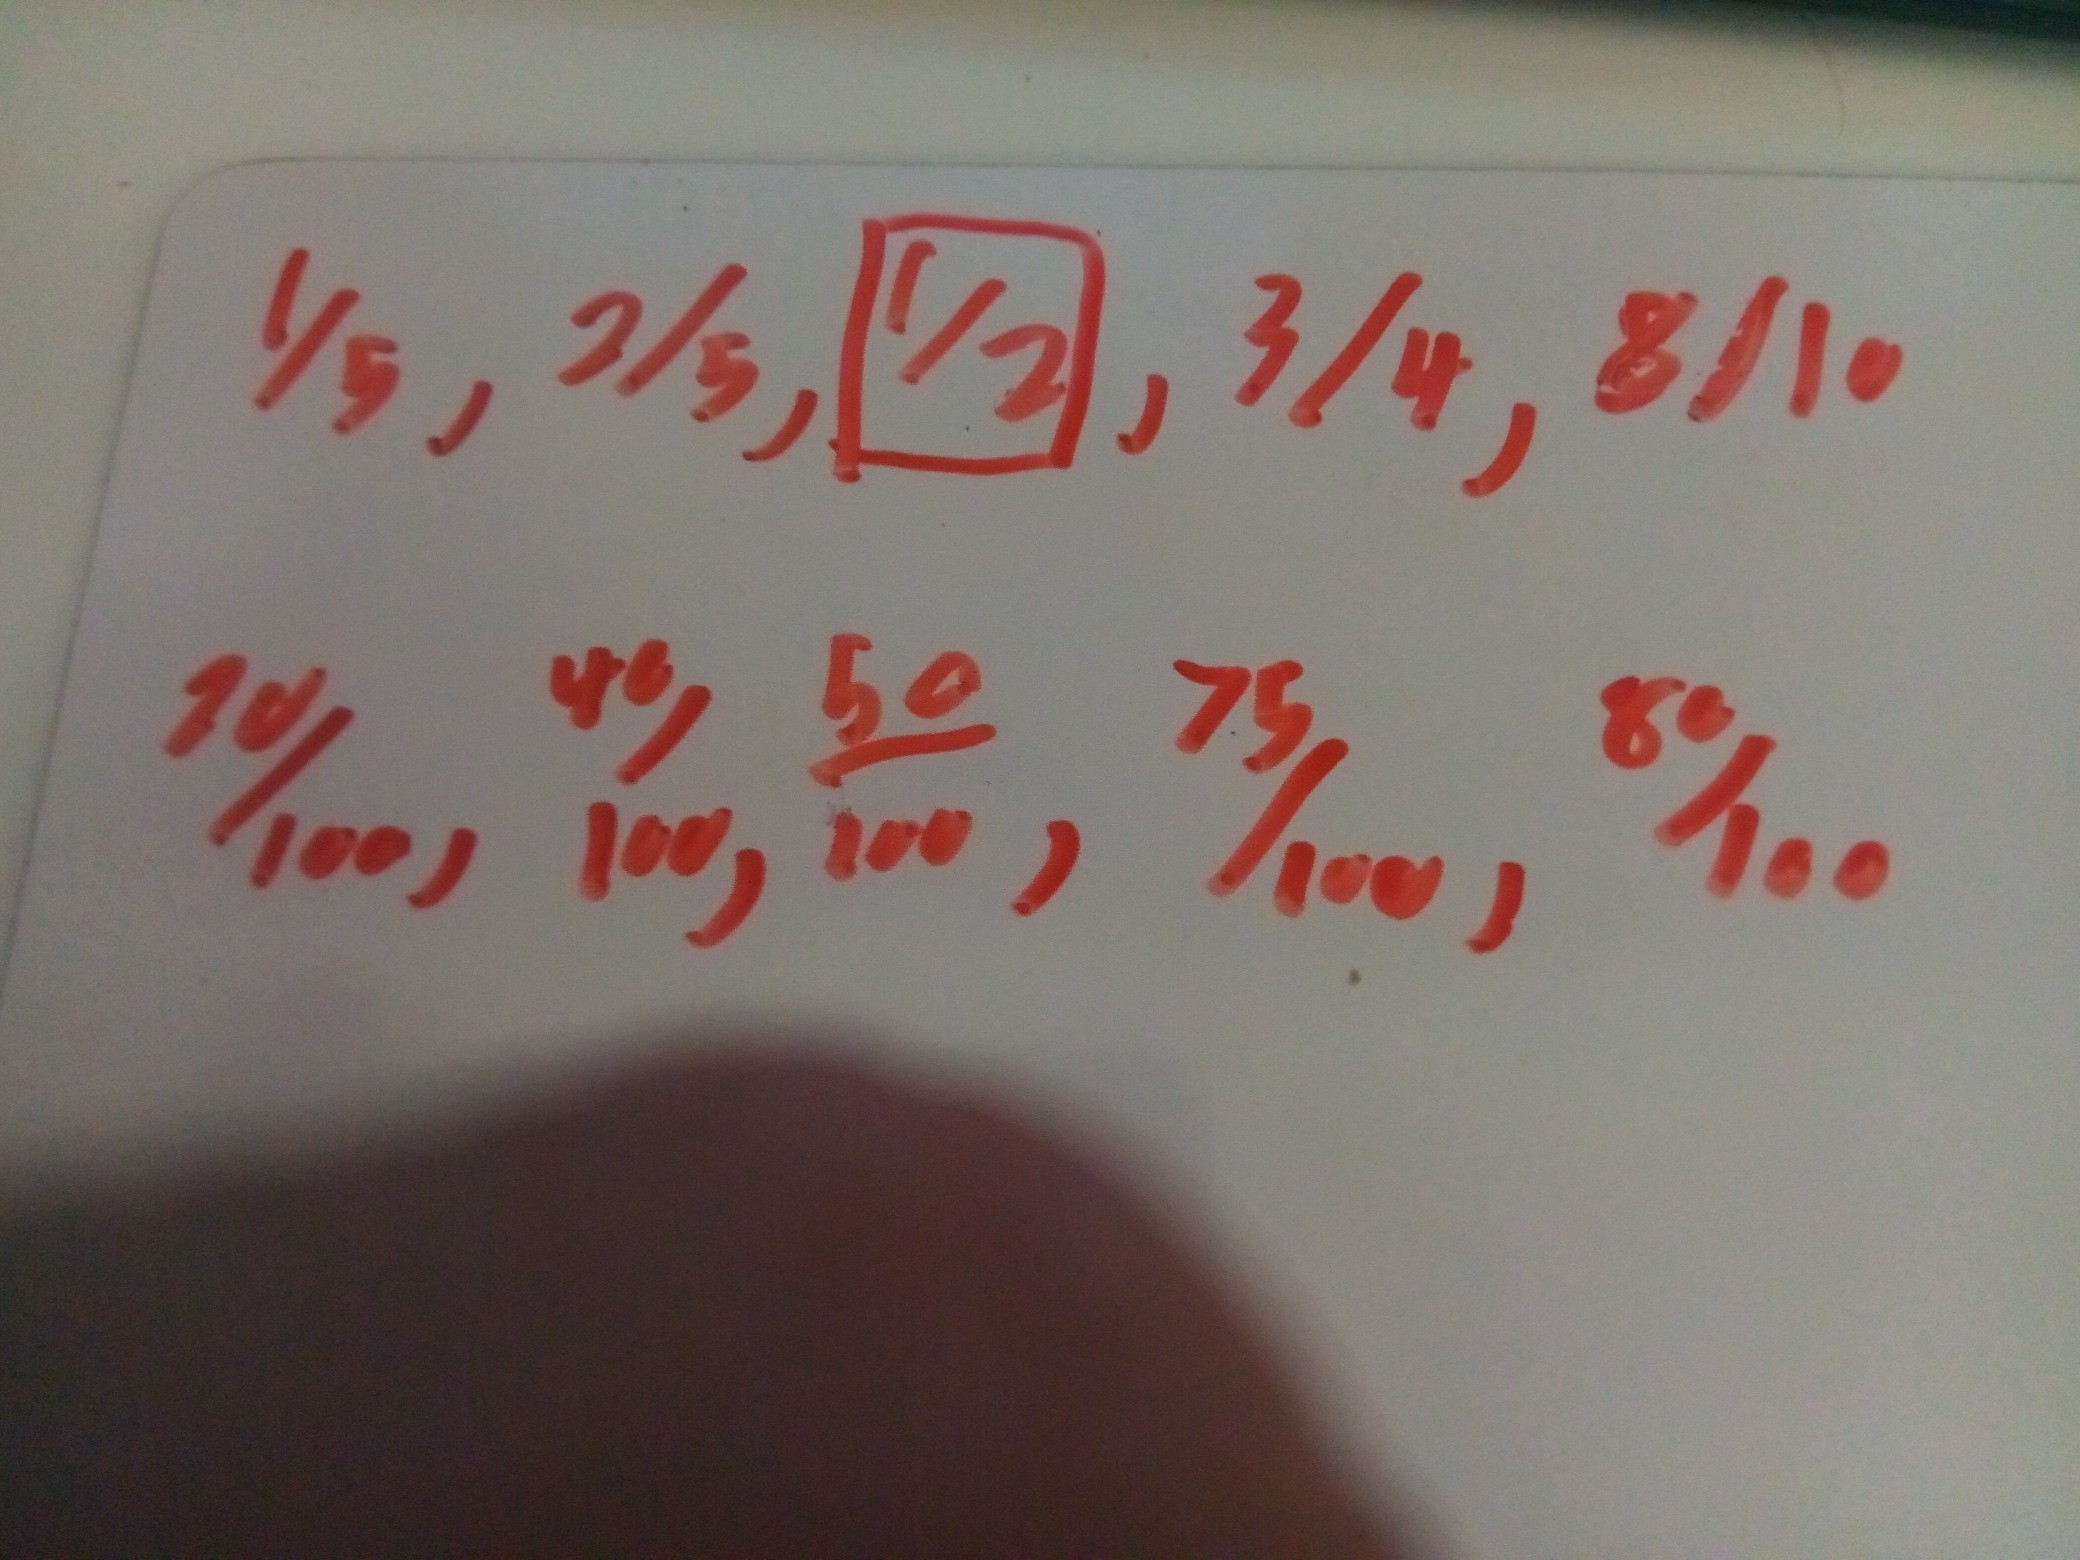 1/5, 2/5, 1/2, 3/4, 8/10
20/100, 40/100, 50/100, 75/100, 80/100